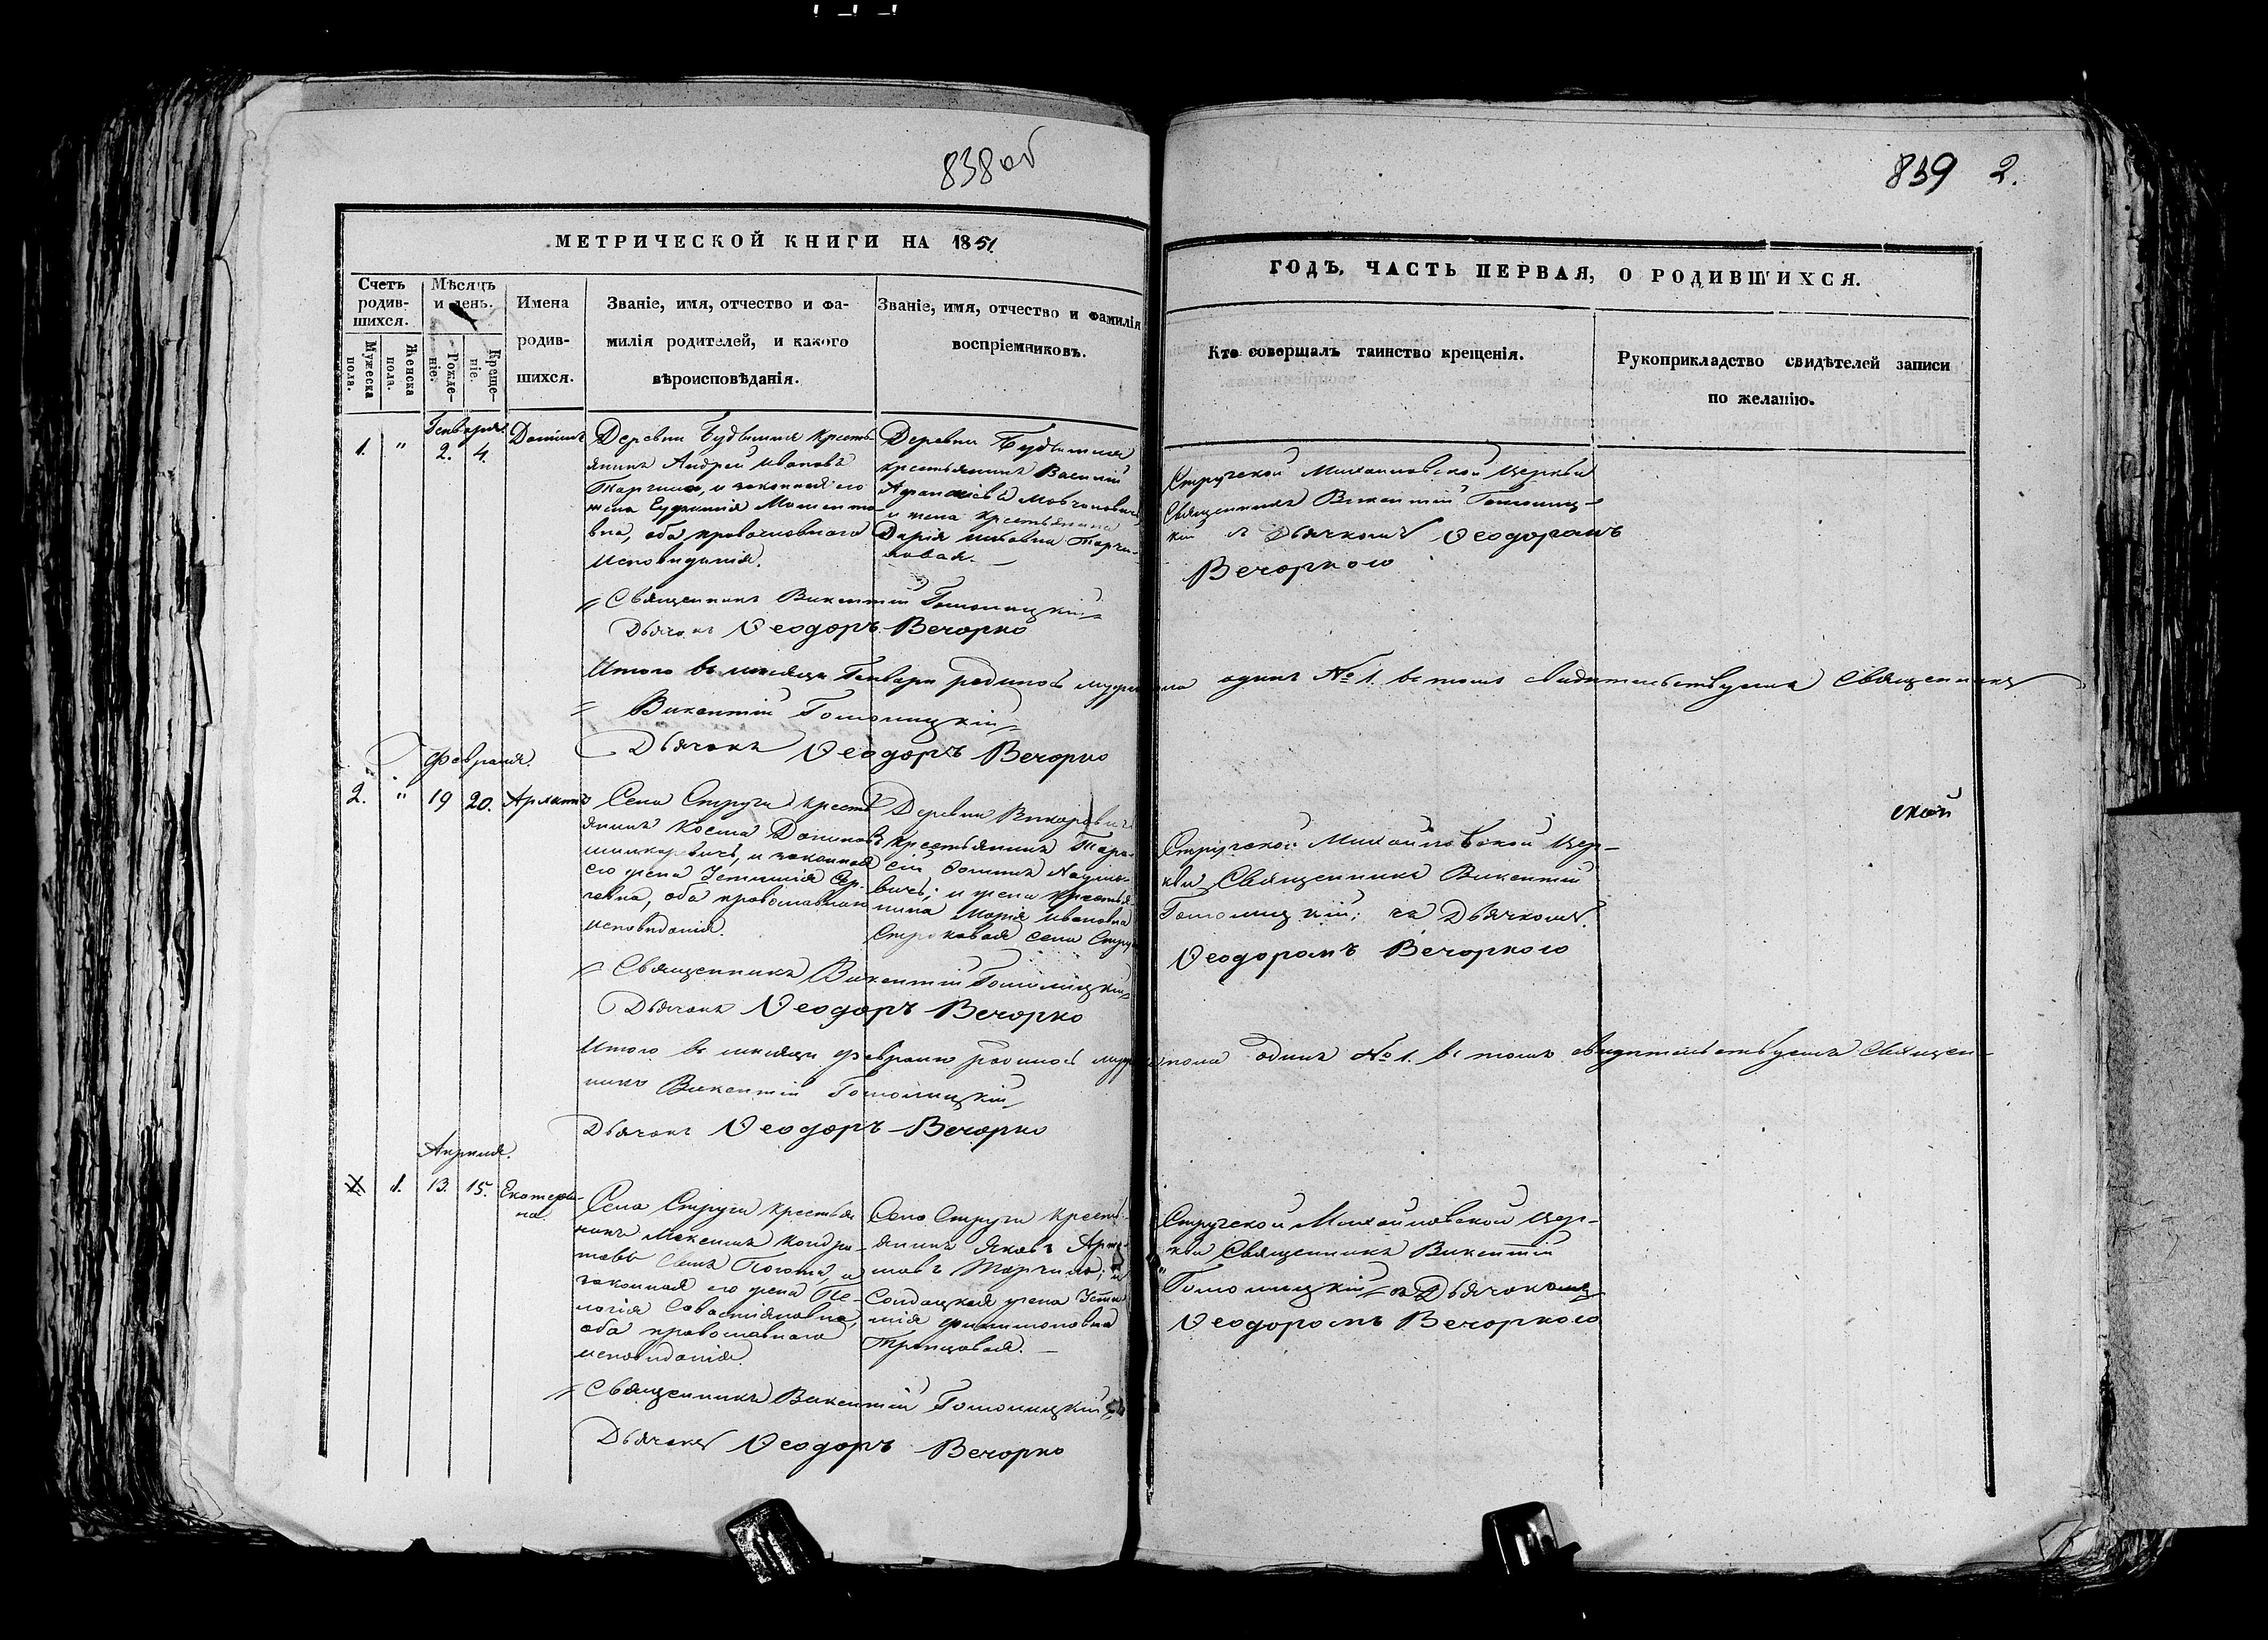 838об
839 2.
МЕТРИЧЕСКОЙ КНИГИ НА 1851
ГОДЪ, ЧАСТЬ ПЕРВАЯ, О РОДИВШИХСЯ.
Счетъ родив-шихся.
Мужеска пола.
Женска пола.
Мѣсяцъ и день.
Рожде-ніе.
Креще-ніе.
Имена родив-шихся.
Званіе, имя, отчество и фа-
милія родителей, и какого
вѣроисповѣданія.
Званіе, имя, отчество и фамилія
воспріемниковъ.
Кто совершалъ таинство крещенія.
Рукоприкладство свидѣтелей записи
по желанію.
Генваря.
1. " 2. 4.
Деревни крестья-
янинъ Андрей Ивановъ
и законная его
жена
вна, оба православнаго
исповѣданія.
Деревни
крестьянинъ Василій
и жена крестьянина
Дарія
Стругской Михайловской церкви
Священникъ Викентій Гомолиц-
кій съ Дьячкомъ Ѳеодоромъ
Вечоркою
Священникъ Викентій Гомолицкій
Дьячекъ Ѳеодоръ Вечорко
Итого въ мѣсяцѣ Генварѣ родилось муж. пола одинъ № 1. въ томъ свидѣтельствуемъ Священникъ
Викентій Гомолицкій
Дьячекъ Ѳеодоръ Вечорко
Февраля.
2. " 19 20.
Села Струги крестья
янинъ Косма
и законная
его жена Устинія
оба православнаго
исповѣданія.
Деревни
крестьянинъ Тара-
сій
и жена крестья-
нина Марія Ивановна
села Струги
ской
Стругской Михайловской Цер-
кви Священникъ Викентій
Гомолицкій; съ Дьячкомъ
Ѳеодоромъ Вечоркою
Священникъ Викентій Гомолицкій
Дьячекъ Ѳеодоръ Вечорко
Итого въ мѣсяцѣ Февралѣ родилось муж. пола одинъ № 1. въ томъ свидѣтельствуемъ Священ-
никъ Викентій Гомолицкій
Дьячекъ Ѳеодоръ Вечорко
Апрѣля.
1. 13. 15. Екатери-
на.
Села Струги крестья
нинъ Максимъ Кондра-
товъ и
законная его жена Пе-
лагія Савастіановна,
оба православнаго
исповѣданія.
Села Струги крестья-
янинъ Яковъ
и
Солдацкая жена Усти
нія Филимоновна
Стругской Михайловской Цер-
кви Священникъ Викентій
Гомолицкій съ Дьячкомъ
Ѳеодоромъ Вечоркою
Священникъ Викентій Гомолицкій
Дьячекъ Ѳеодоръ Вечорко